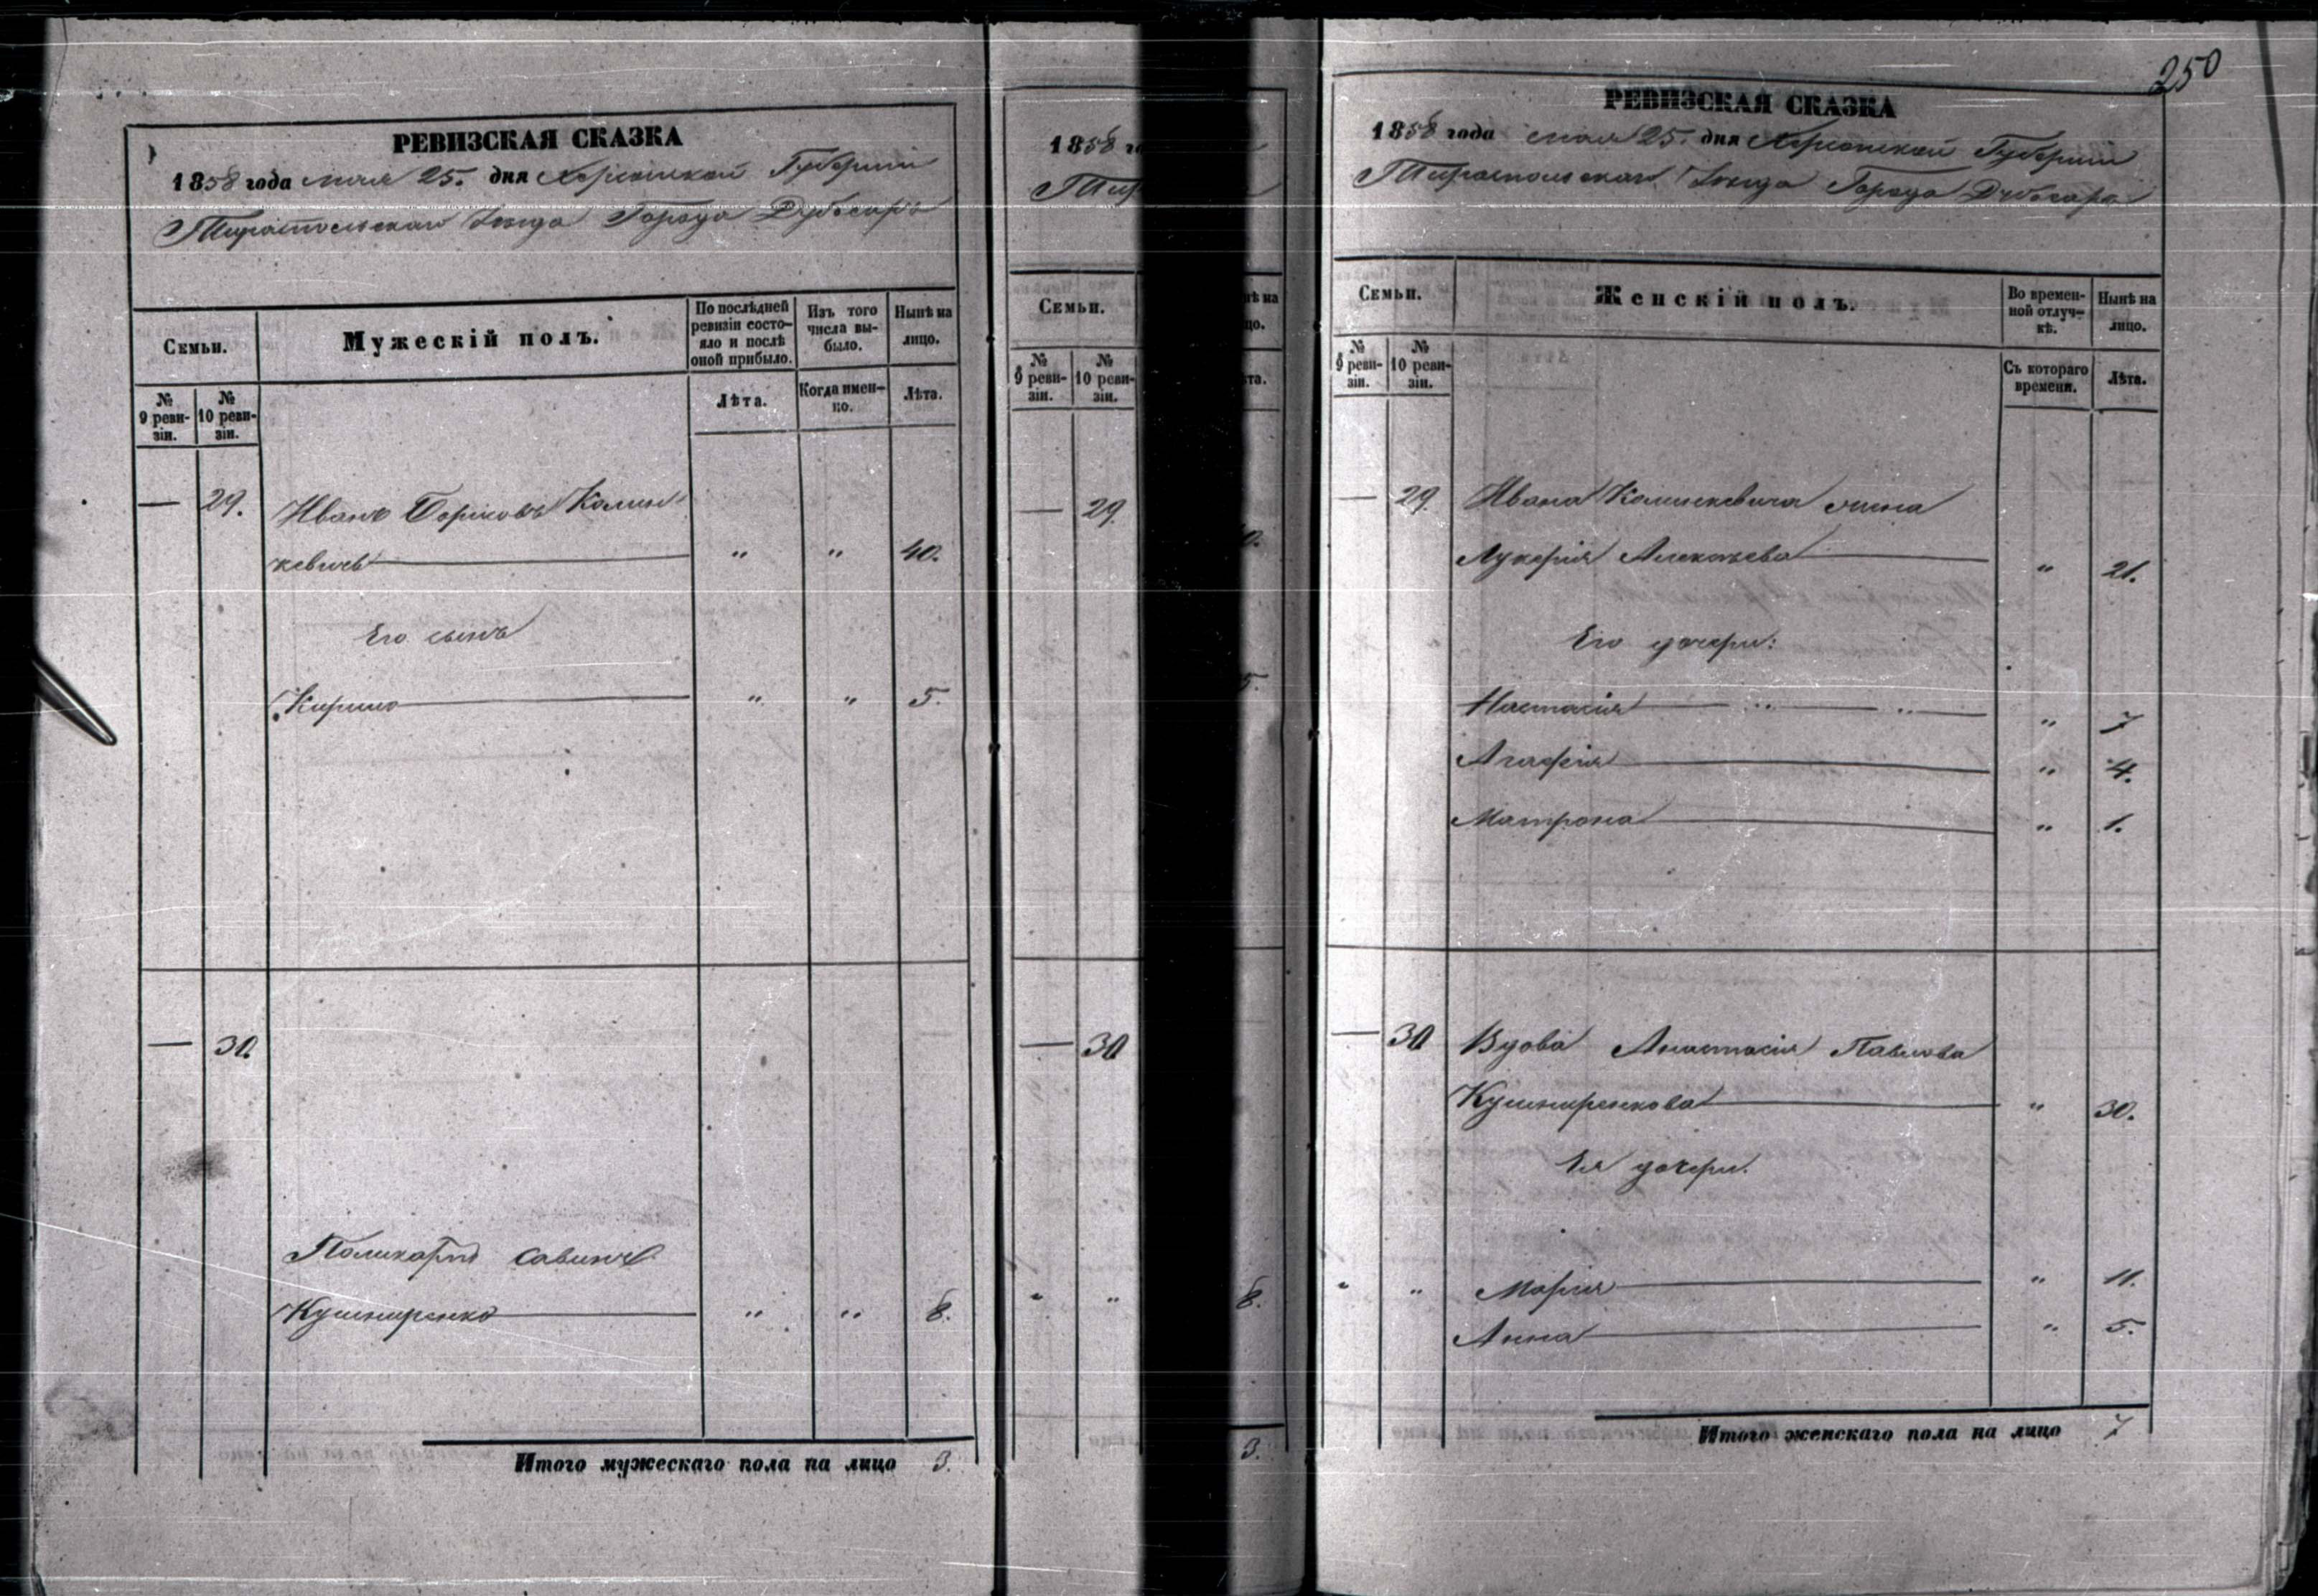 РЕВИЗСКАЯ СКАЗКА
1858 года мая 25. дня Херсонской Губерніи
Тираспольскаго Уезда Города Дубосаръ
Семьи.
Мужескій полъ.
По послѣдней ревизіи состо-
яло и послѣ
оной прибыло.
Изъ того
числа вы-
было.
Нынѣ на
лицо.
№
9 реви-
зіи.
№
10 реви-
зіи.
Лѣта.
Когда имен-
но.
Лѣта.
— 29. Иванъ Калин
кевичь " " 40.
Его сынъ
Кирило " " 5.
— 30.
Поликарпъ Савинъ
Кушниренко " " 8.
Итого мужескаго пола на лицо 3.
1858 го
Тир
Семьи.
№
9 реви-
зіи.
№
10 реви-
зіи.
— 29.
— 30
" "
нѣ на
цо.
та.
0.
5.
8.
3.
250
РЕВИЗСКАЯ СКАЗКА
1858 года мая 25. дня Херсонской Губерніи
Тираспольскаго Уезда Города Дубосаръ
Семьи.
Женскій полъ.
Во времен-
ной отлуч-
кѣ.
Нынѣ на
лицо.
№
9 реви-
зіи.
№
10 реви-
зіи.
Съ котораго
времени.
Лѣта.
— 29. Ивана Калинкевича жена
Лукерія Алексѣева " 21.
Его дочери:
Настасія " 7
Агафія " 4.
Матрона " 1.
— 30 Вдова Анастасія Павлова
Кушниренкова " 30.
Ея дочери.
" " Марія " 11.
Анна " 5.
Итого женскаго пола на лицо 7